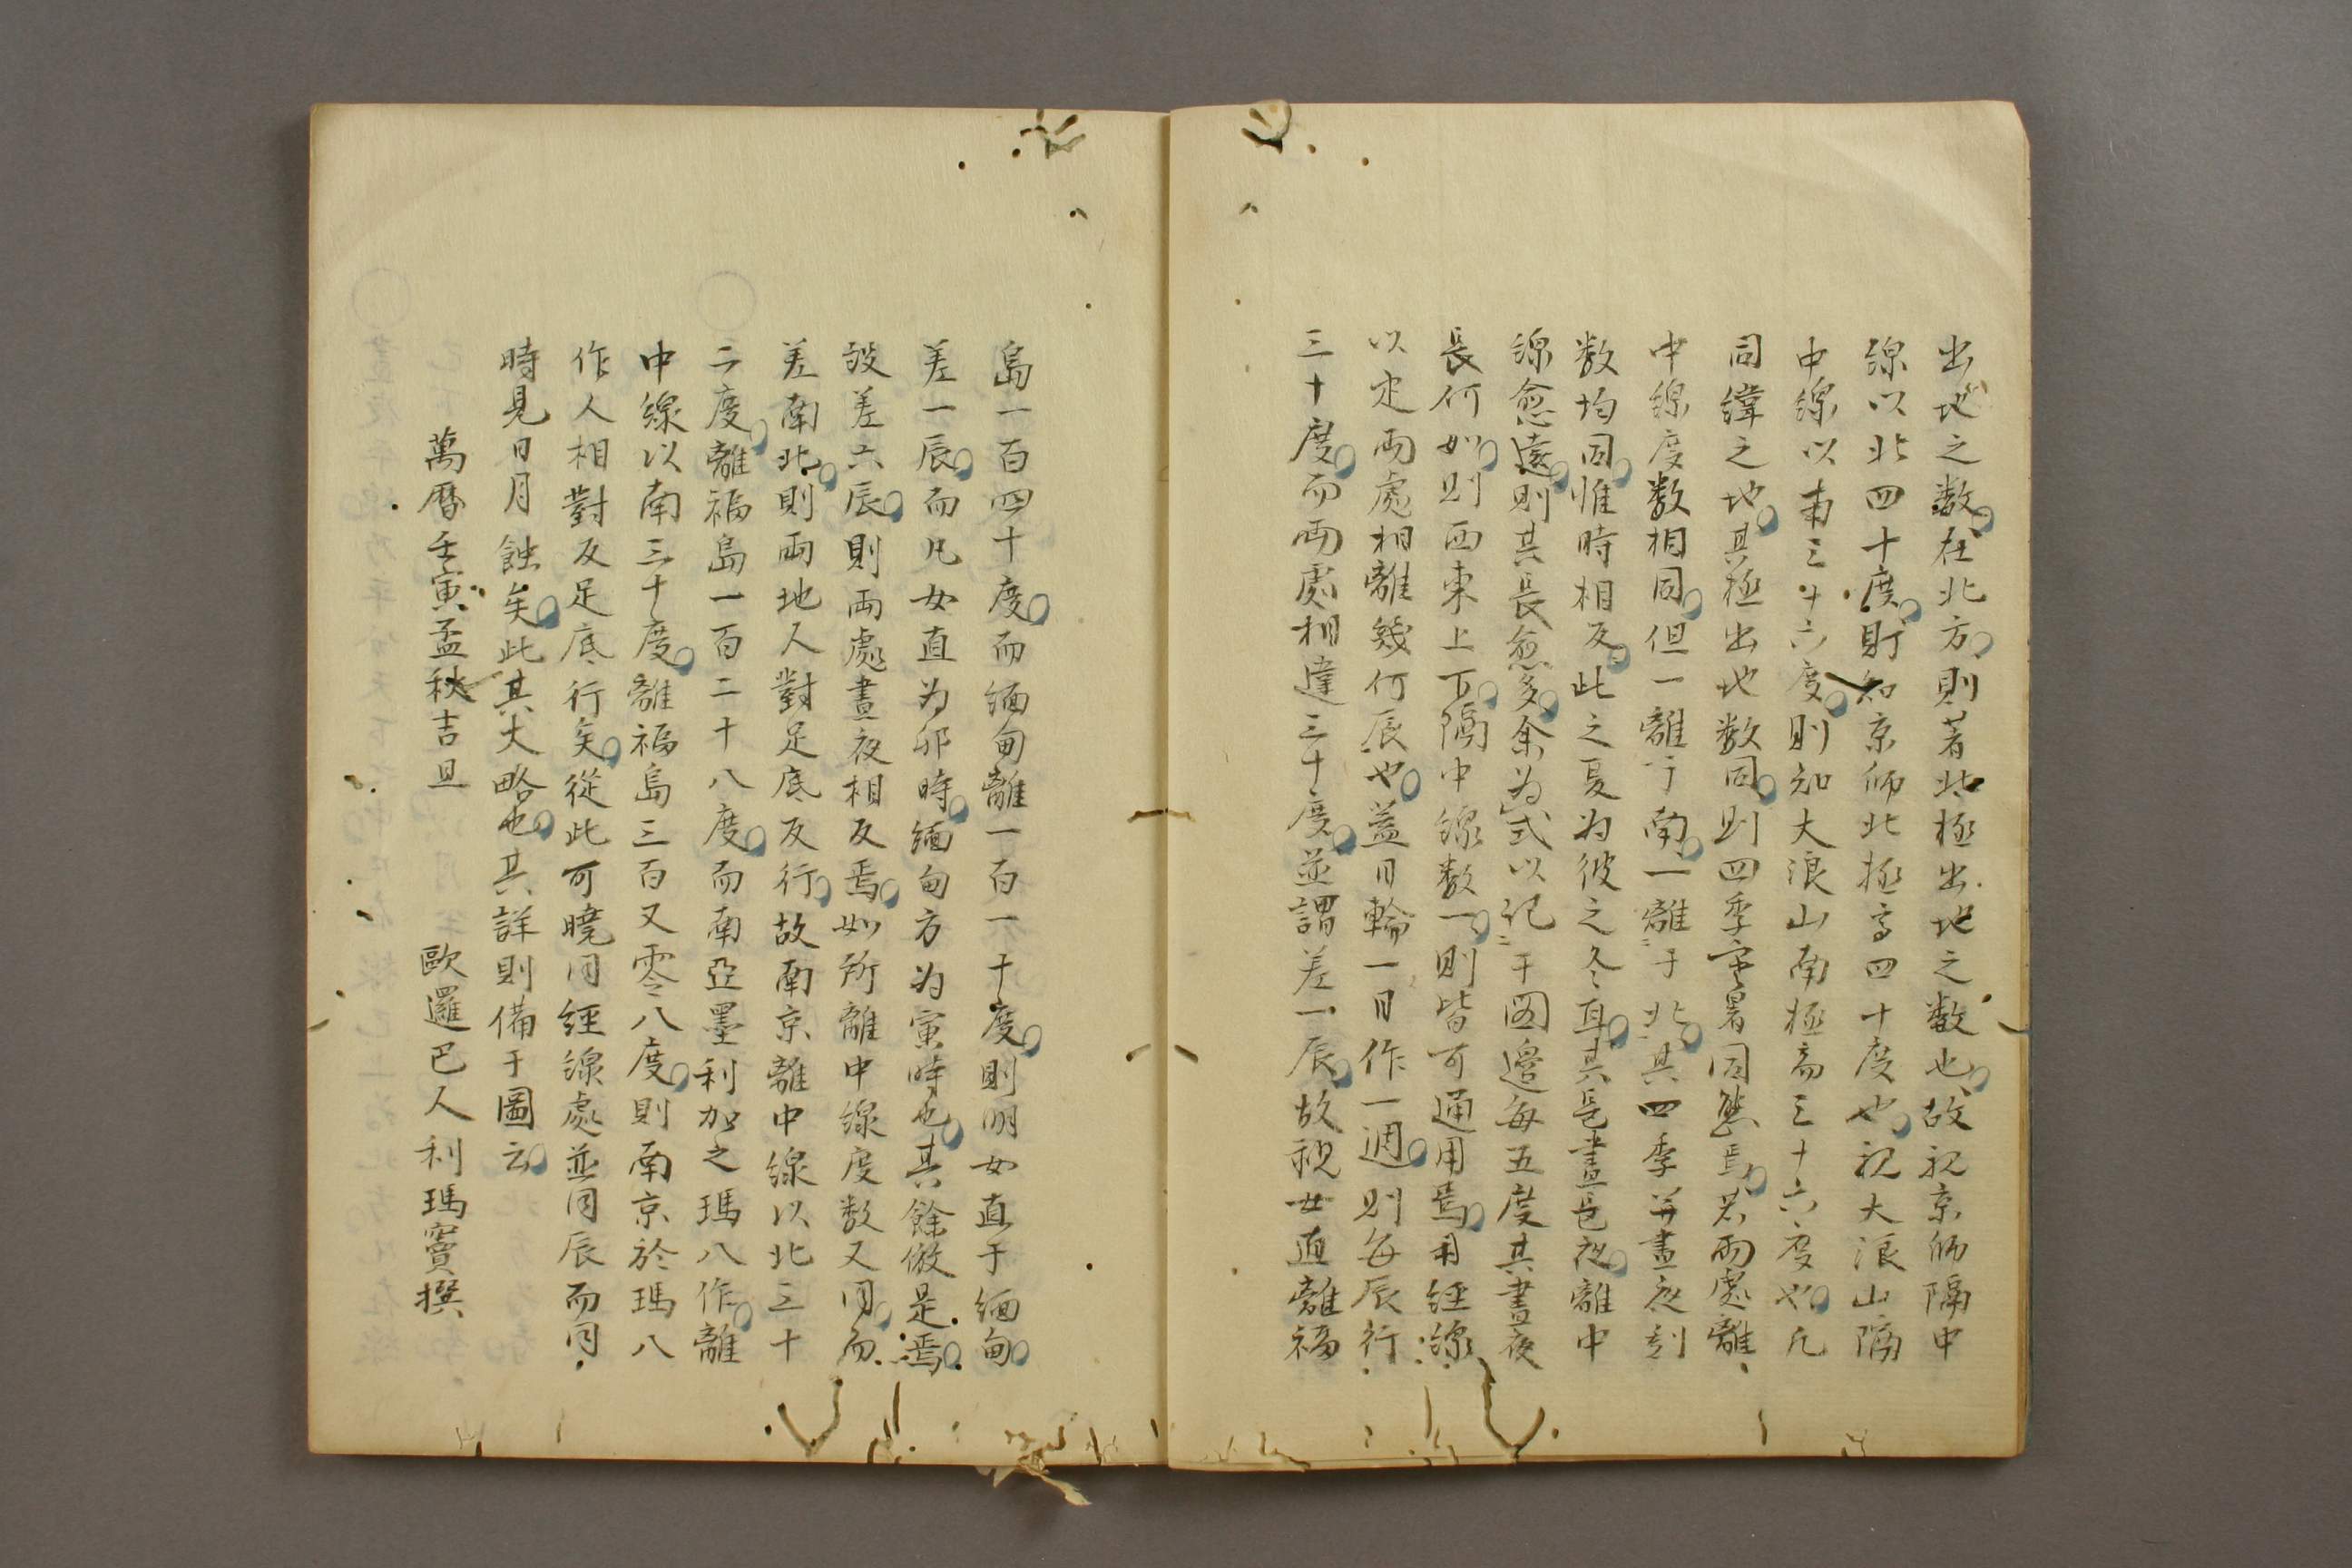 出地之数在北方則著北極出地之数也故視京師隔中
線以北四十度則知京師北極高四十度也視大浪山隔
中線以南三十六度則知大浪山南極高三十六度也凡
同緯之地其極出地数同則四季寒暑同態焉若両處離
中線度数相同但一離于南一離于北其四季并晝夜刻
数均同惟時相反此之夏為彼之冬耳其長晝長夜離中
線愈遠則其長愈多余為式以記于図邉每五度其晝夜
長何如則西東上下隔中線数一則皆可通用焉用経線
以定両處相離幾何辰也蓋日輪一日作一週則每辰行
三十度而両處相違三十度並謂差一辰故視女直離福
島一百四十度而緬甸離一百一十度則明女直于緬甸
差一辰而凡女直为卯時緬甸方为寅時也其餘倣是焉
設差六辰則両處晝夜相反焉如所離中線度数又同而
差南北則両地人對足底反行故南京離中線以北三十
二度離福島一百二十八度而南亞墨利加之瑪八作離
中線以南三十度離福島三百又零八度則南京於瑪八
作人相對反足底行矣從此可曉同経線處並同辰而同
時見日月蝕矣此其大略也其詳則備于圖云
萬暦壬寅孟秋吉旦　歐邏巴人利瑪竇撰